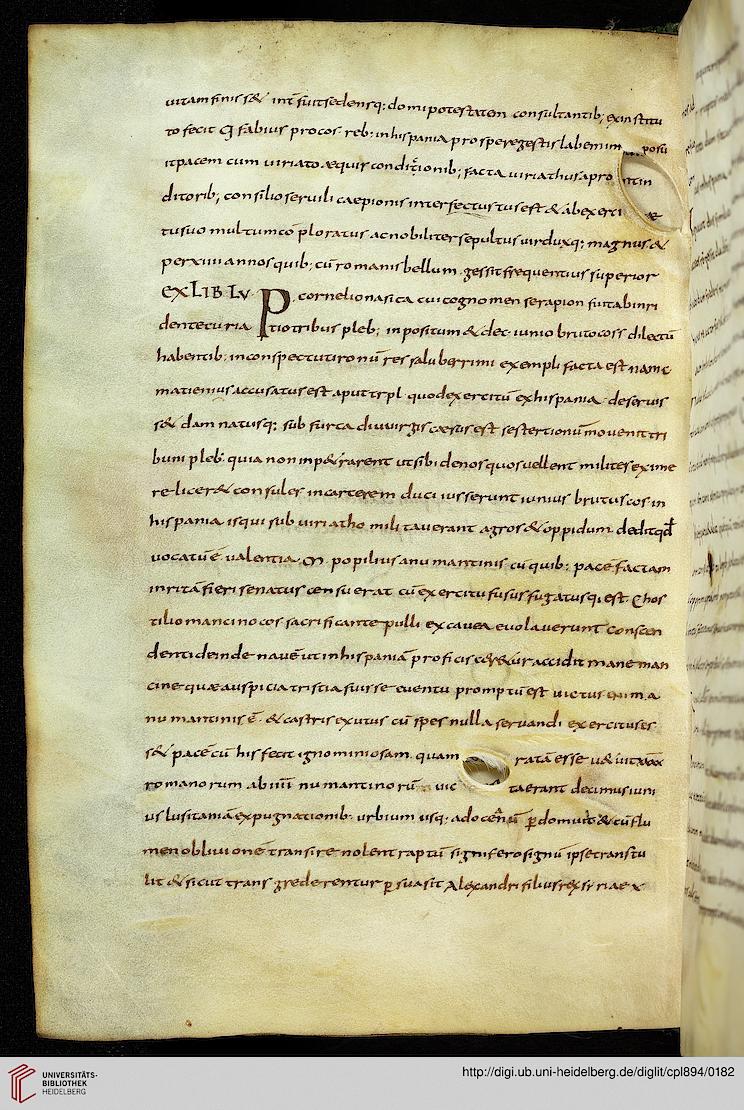 uitam finis s& int fuits& densq; domi potestatem consultantib; exinstitu
to fecit Q fabius procos reb: in hispania prospere gestis labem im posu
it pacem cum uiriato aequis condition ib; facta uiriathus a pro
ditorib; consilio seruili caepionis interfectus tust est & ab exerci
tu suo multum coploratus ac nobiliter sepultus uir duxq; magnus &
per xiiii annos quib; cu romanis bellum gessit frequentius superior
EX LIB LV P. cornelio nasica cui cognomen serapion fuit ab inri
dente curia tio tribus pleb; in positum & dec iunio bruto coss dilectu
habentib; in conspectu tironu res saluberrimi exempli facta est nam c
matienius accusatus est aput tr pl quod exercitu ex hispania deseruis
s& damnatusq; sub furca diu uirgis caesus est sestertio nummo uenit tri
buni pleb quia non inp&rarent ut sibi denos quos uellent milites exime
re licer& consules in carcerem duci iusserunt iunius brutus cos in
hispania is qui sub uiriatho militauerant agros & oppidum dedit qd
uocatu e ualentia M popilius a numantinis cu quib: pace factam
inrita fieri senatus censuerat cu exercitu fusus fugatusq; est C hos
tilio mancino cos sacrificante pulli ex cauea euolauerunt conscen
denti deinde naue ut in hispania proficisceretur accidit mane man
cine quae auspicia tristia fuisse euentu promptu est uictus enim a
numantinis e & castris exutus cu spes nulla seruandi exercitus es
s& pace cu his fecit ignominiosam quam rata esse u&uit
romanorum ab iiii numantinoru uic taerant decimus iuni
us lusitania expugnationib. urbium usq; ad ocenu pdomuit & cu flu
men obliuione transire nolent raptu signifero signu ipse transtu
lit & sicut transgrederentur p suasit Alexandri filius rex siriae x
UNIVERSITÄTS-
BIBLIOTHEK
HEIDELBERG
http://digi.ub.uni-heidelberg.de/diglit/cpl894/0182